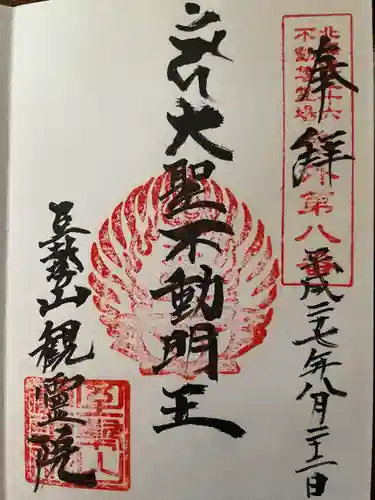 奉拝
北海道三十六
不動尊霊場
第八番
平成二十七年八月二十二日
大聖不動明王
鷲山観霊院